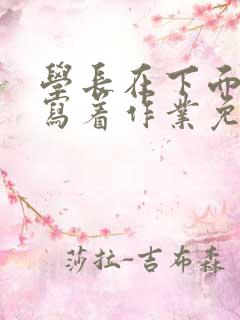 學長在下面
寫着作業免
莎拉-吉布森